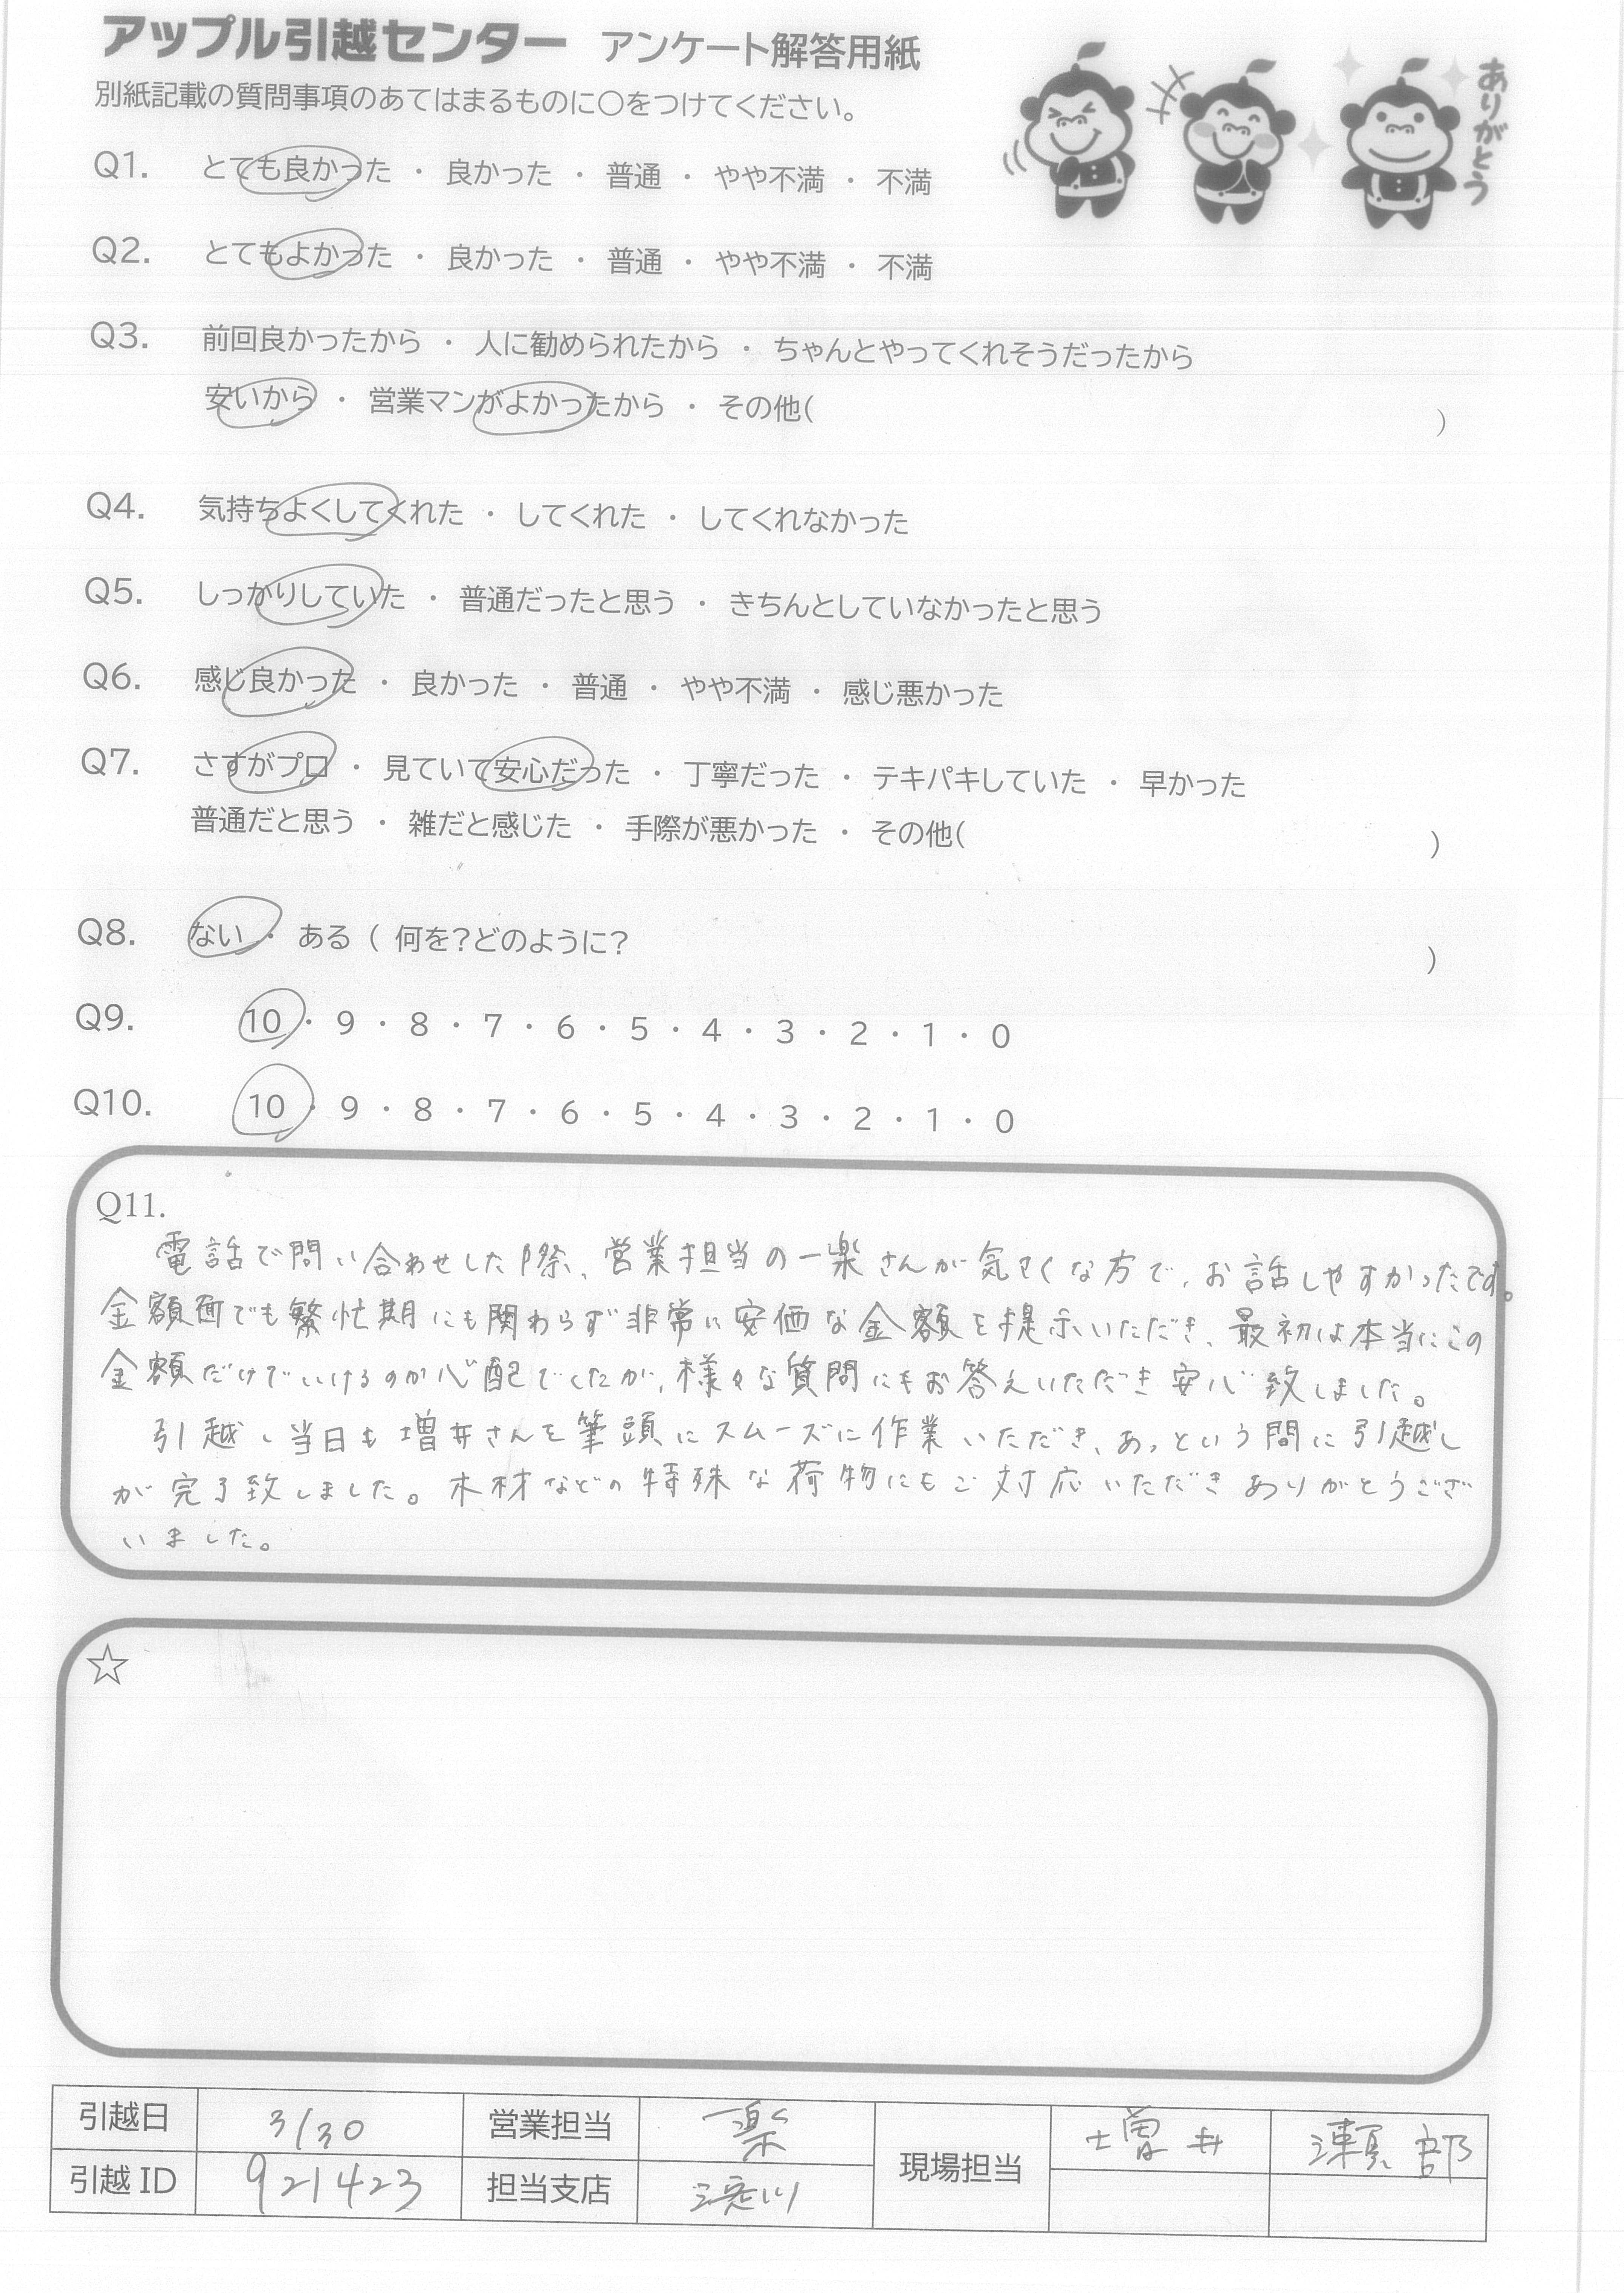 アップル引越センター アンケート解答用紙
別紙記載の質問事項のあてはまるものに○をつけてください。
ありがとう
Q1. とても良かった ・ 良かった ・ 普通 ・ やや不満 ・ 不満
Q2. とてもよかった ・ 良かった ・ 普通 ・ やや不満 ・ 不満
Q3. 前回良かったから ・ 人に勧められたから ・ ちゃんとやってくれそうだったから
安いから ・ 営業マンがよかったから ・ その他( )
Q4. 気持ちよくしてくれた ・ してくれた ・ してくれなかった
Q5. しっかりしていた ・ 普通だったと思う ・ きちんとしていなかったと思う
Q6. 感じ良かった ・ 良かった ・ 普通 ・ やや不満 ・ 感じ悪かった
Q7. さすがプロ ・ 見ていて安心だった ・ 丁寧だった ・ テキパキしていた ・ 早かった
普通だと思う ・ 雑だと感じた ・ 手際が悪かった ・ その他( )
Q8. ない ・ ある ( 何を?どのように? )
Q9. 10 ・ 9 ・ 8 ・ 7 ・ 6 ・ 5 ・ 4 ・ 3 ・ 2 ・ 1 ・ 0
Q10. 10 ・ 9 ・ 8 ・ 7 ・ 6 ・ 5 ・ 4 ・ 3 ・ 2 ・ 1 ・ 0
Q11.
電話で問い合わせした際、営業担当の一楽さんが気さくな方で、お話しやすかったです。
金額面でも繁忙期にも関わらず非常に安価な金額を提示いただき、最初は本当にこの
金額だけでいけるのか心配でしたが、様々な質問にもお答えいただき安心致しました。
引越し当日も増井さんを筆頭にスムーズに作業いただき、あっという間に引越し
が完了致しました。木材などの特殊な荷物にもご対応いただきありがとうござ
いました。
☆
引越日 3/30 営業担当 一楽 現場担当 増井 瀬部
引越ID 921423 担当支店 淀川